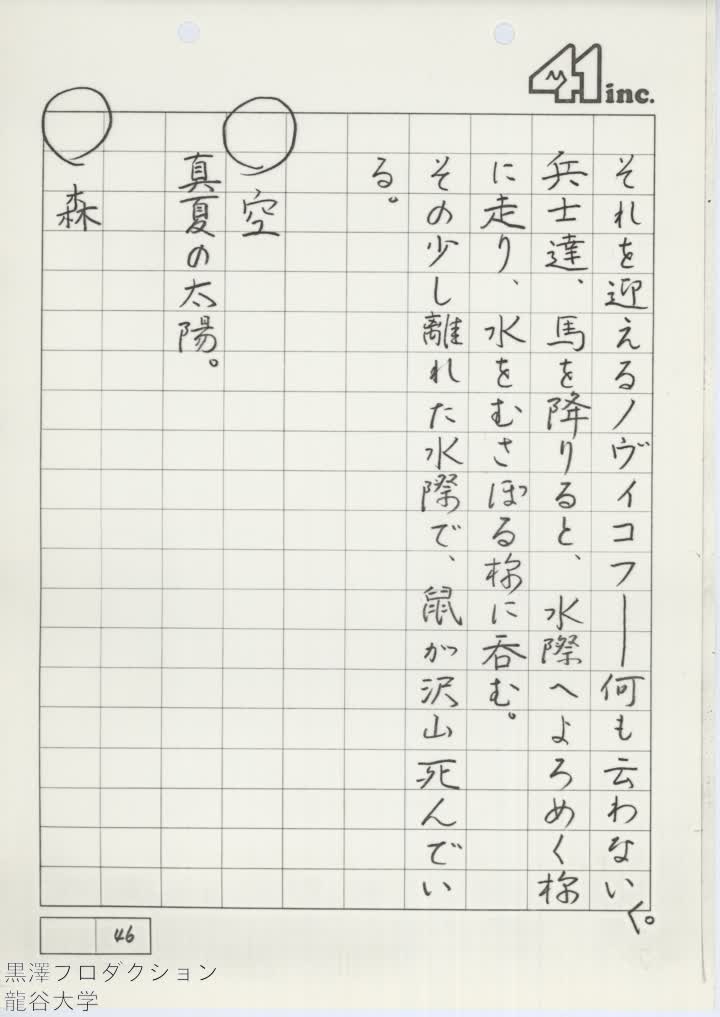 41 inc.
それを迎えるノヴィコフ――何も云わない。
兵士達、馬を降りると、水際へよろめく様
に走り、水をむさぼる様に呑む。
その少し離れた水際で、鼠が沢山死んでい
る。
○ 空
真夏の太陽。
○ 森
46
黒澤プロダクション
龍谷大学